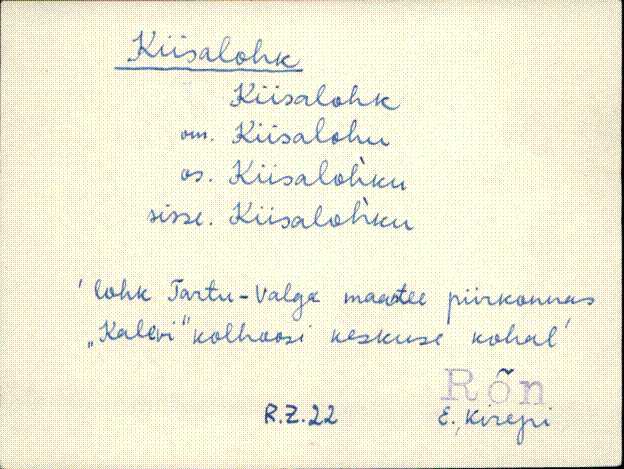 Kiisalohk
Kiisalohk
om. Kiisalohu
os. Kiisaloh̀ku
sisse. Kiisaloh̀ku
'lohk Tartu-Valga maantee piirkonnas
„Kalevi" kolhoosi keskuse kohal'
Rõn
R.Z.22 E. Kirepi